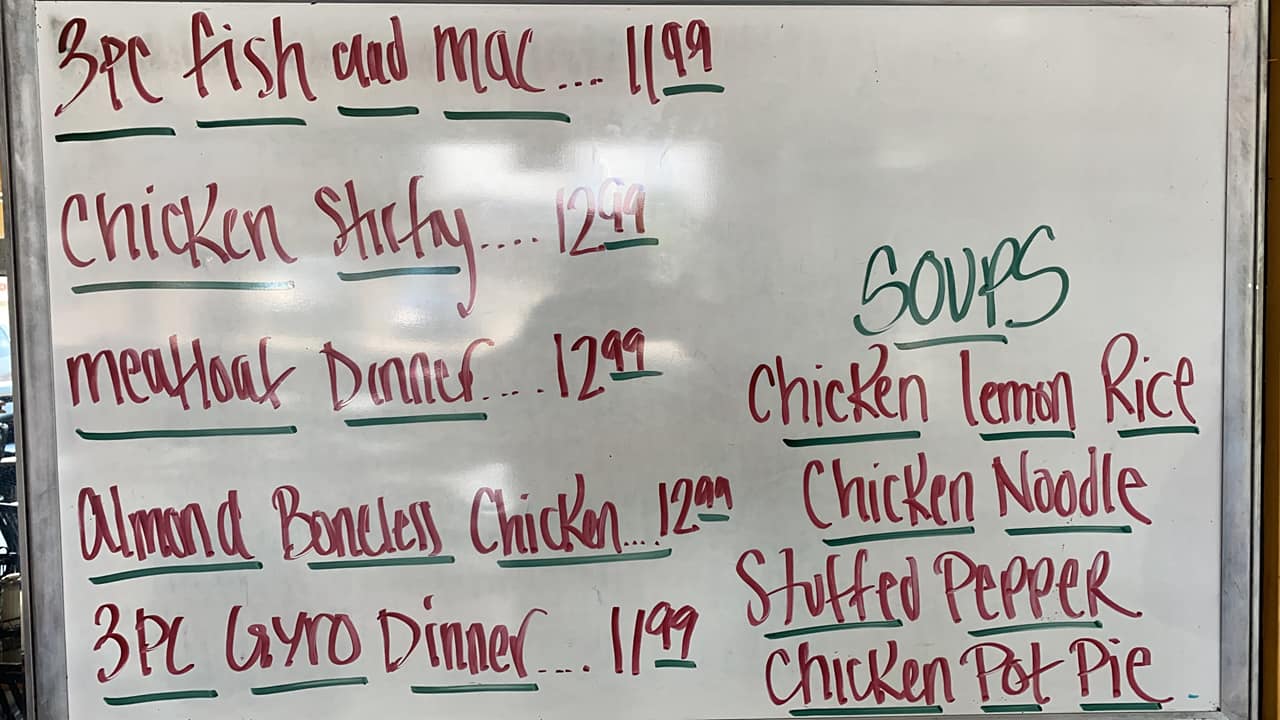 3PC fish and mac... 11.99
Chicken Stirfry.... 12.99
meatloaf Dinner.... 12.99
Almond Boneless Chicken.... 12.99
3PC Gyro Dinner.... 11.99
SOUPS
Chicken lemon Rice
Chicken Noodle
Stuffed Pepper
Chicken Pot Pie